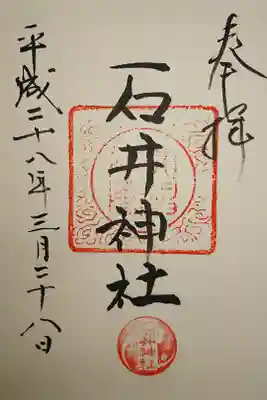 奉拝
石井神社
平成二十八年三月二十八日